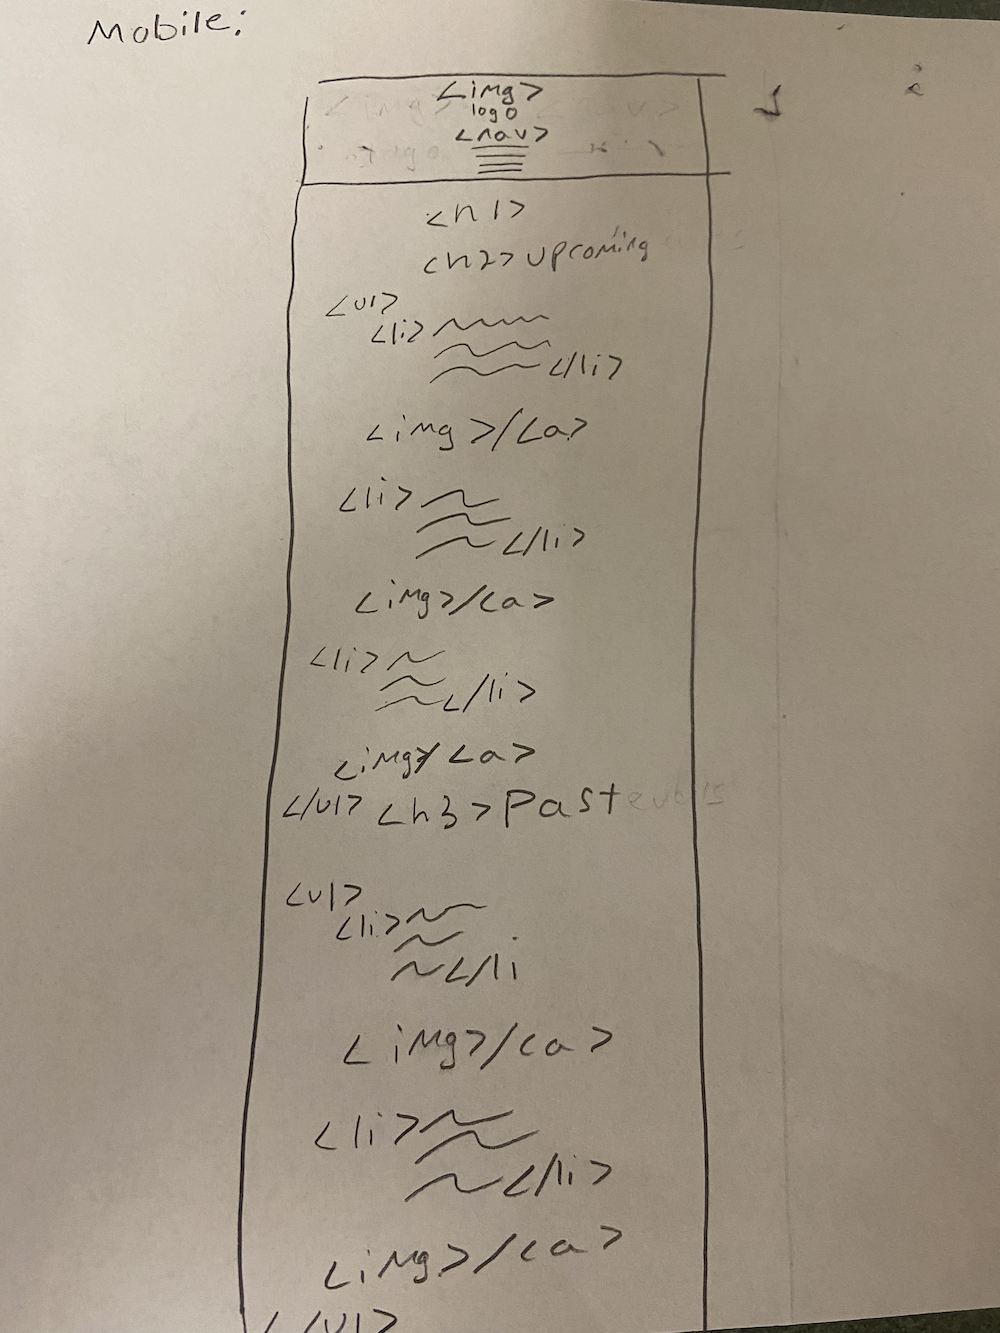 Mobile:
<img>
logo
<nav>
<h1>
<h2> upcoming
<ul>
<li>
</li>
<img>/<a>
<li>
</li>
<img>/<a>
<li>
</li>
<img>/<a>
</ul> <h3> Past
<ul>
<li>
</li
<img>/<a>
<li>
</li>
<img>/<a>
</ul>